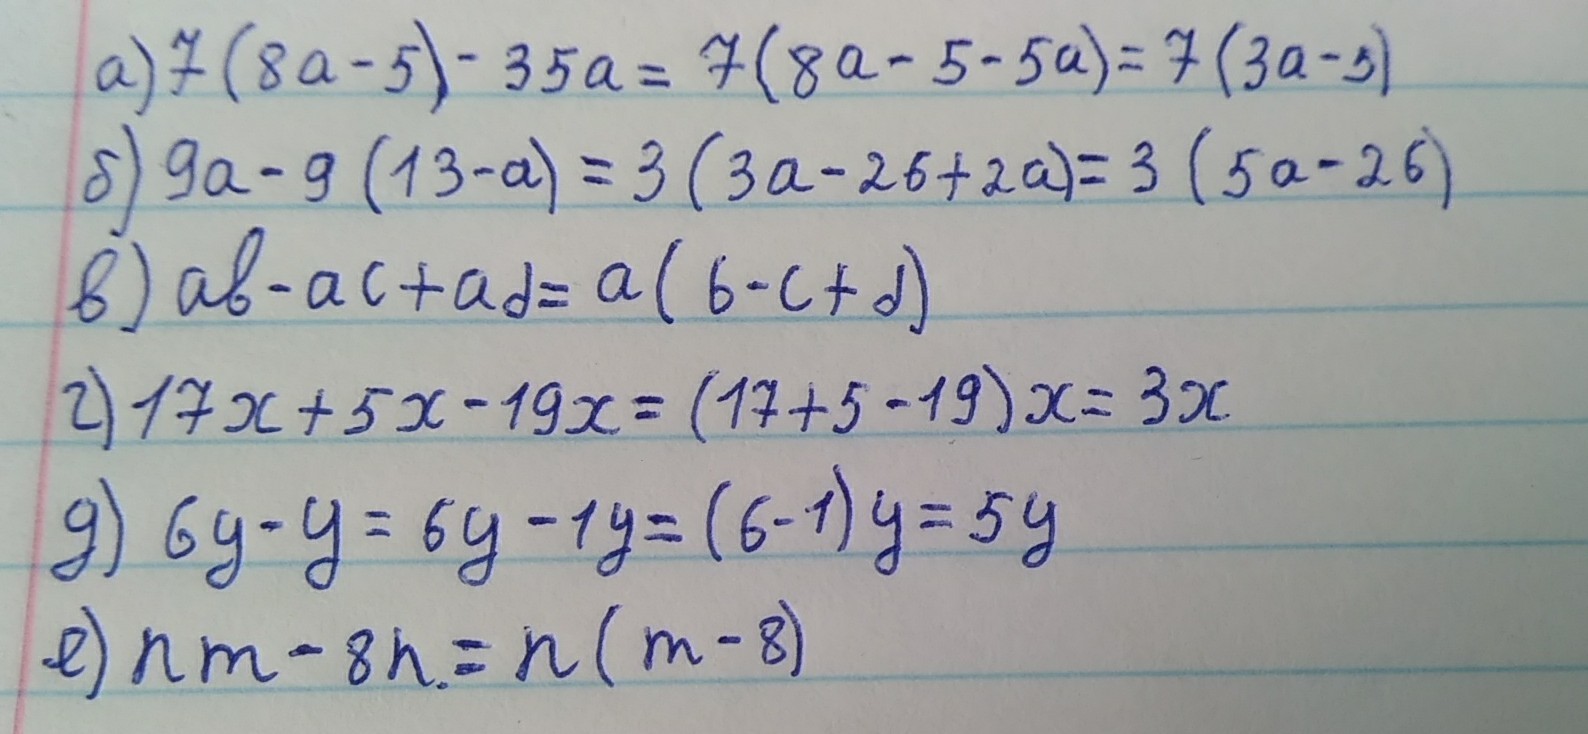 а) 7(8a-5)-35a=7(8a-5-5a)=7(3a-5)
б) 9a-9(13-a)=3(3a-26+2a)=3(5a-26)
в) ab-ac+ad=a(b-c+d)
г) 17x+5x-19x=(17+5-19)x=3x
д) 6y-y=6y-1y=(6-1)y=5y
е) nm-8n.=n(m-8)